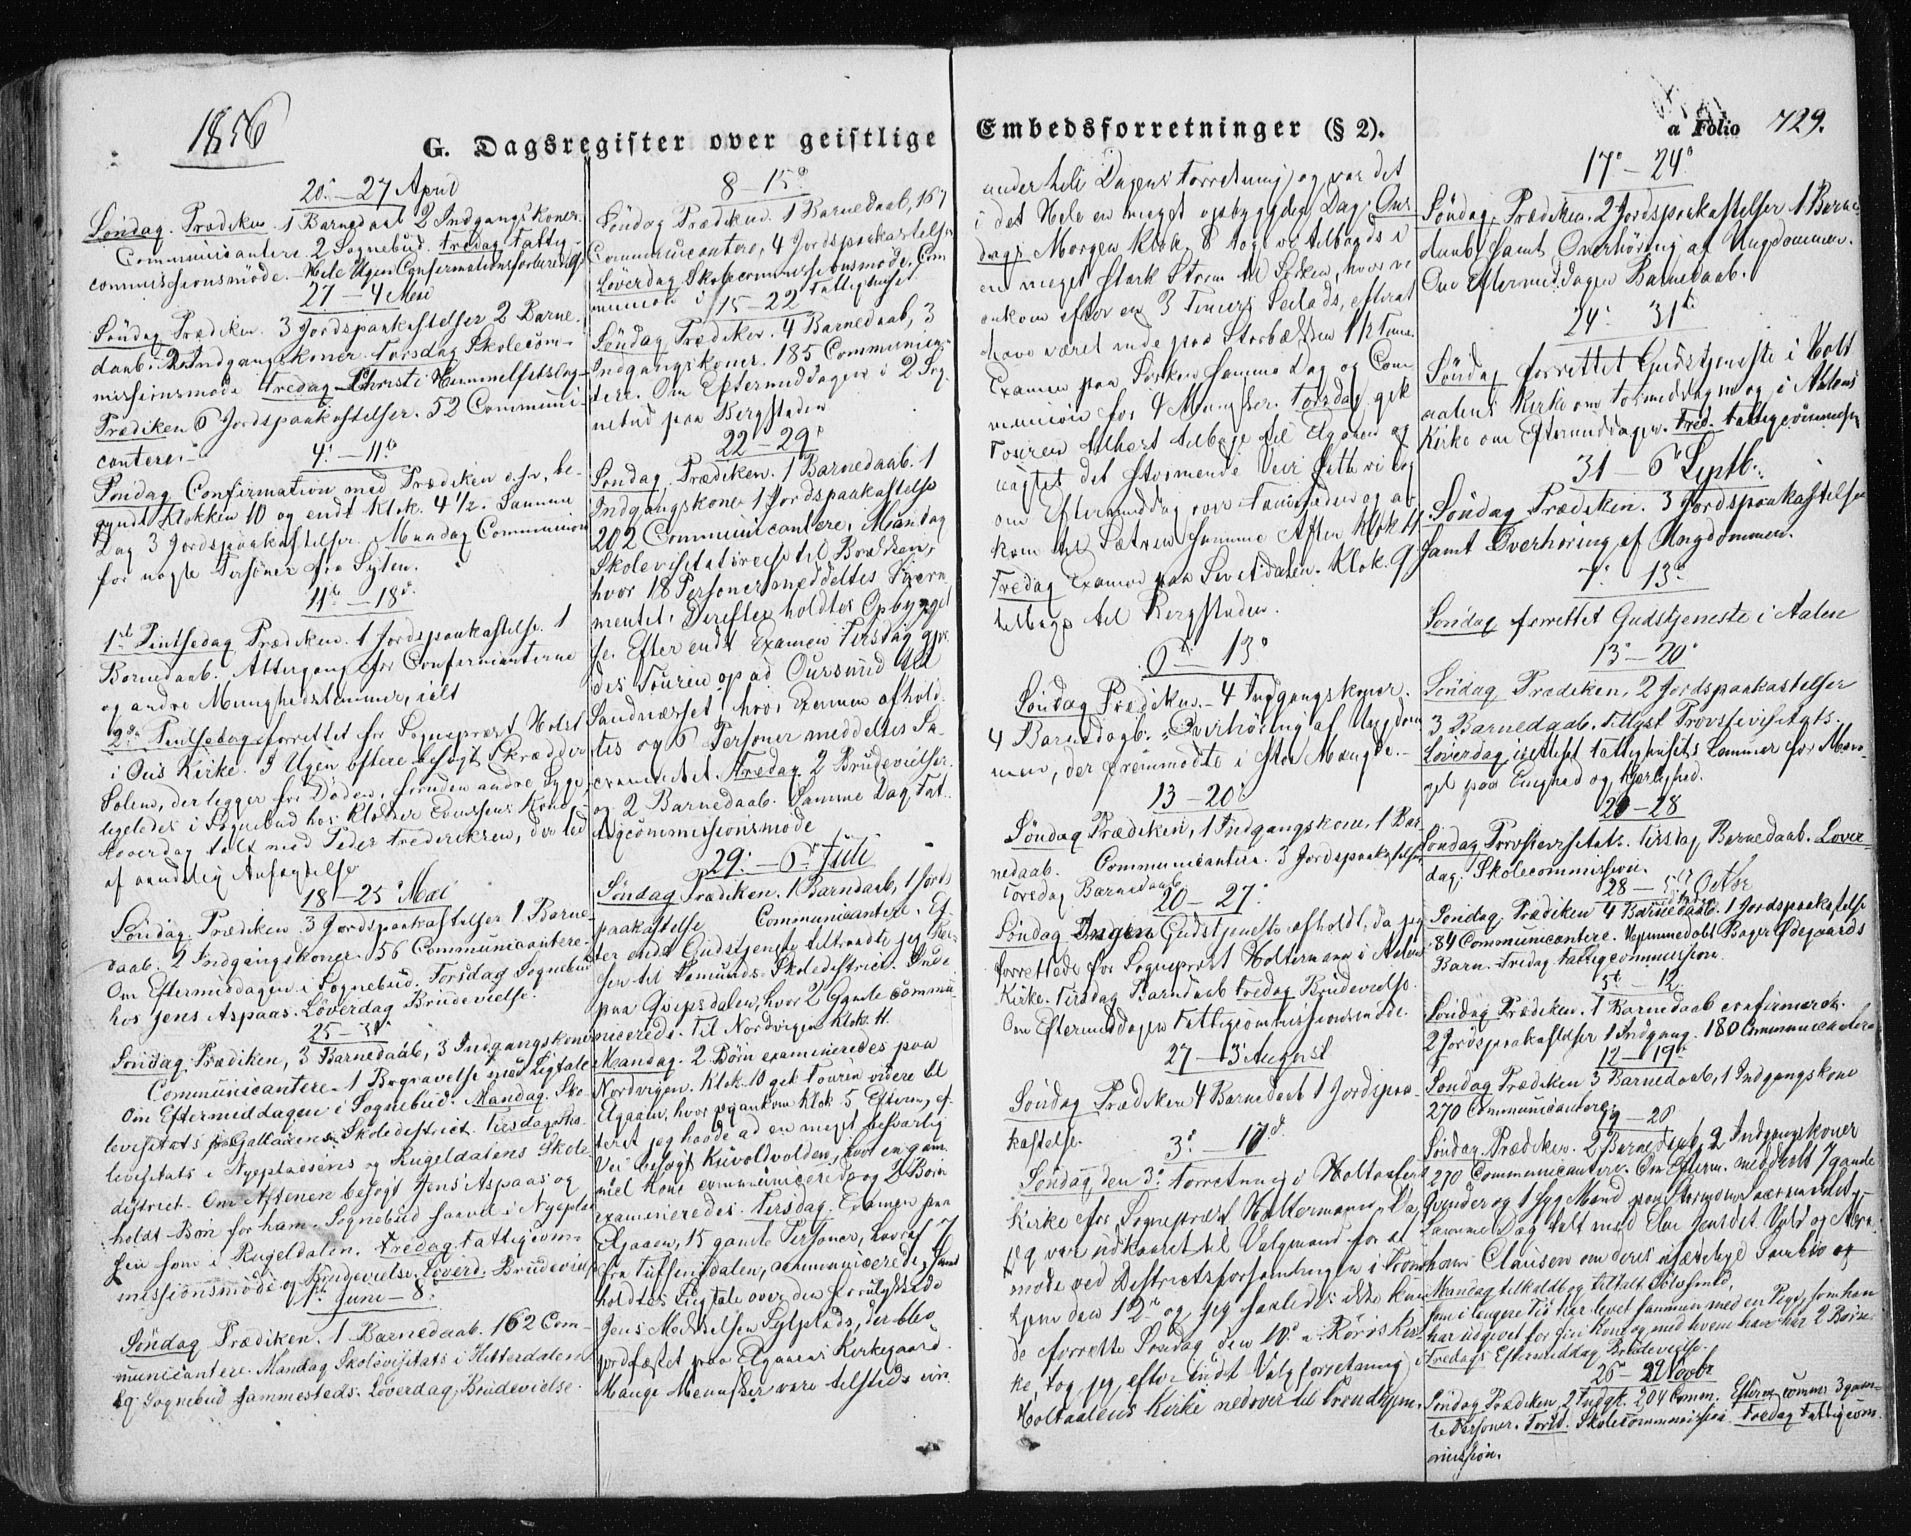 1856
G. Dagsregister over geistlige
20. – 27 April
Søndag. Prædiken 1 Barnedaab 2 Indgangskoner.
Communicantere 2 Sognebud. Fredag Fattig-
commissionsmöde. Hele Ugen Confirmationsforberedelse
27 – 4 Mai
Søndag Prædiken. 3 Jordspaakastelser 2 Barne-
daab. 2 Indgangskoner. Torsdag Skolecom-
missionsmöde Fredag Christi Himmelfartsdag
Prædiken 6 Jordspaakastelser. 52 Communi-
cantere.
4. – 11
Søndag Confirmation med Prædiken o.s.v., be-
gyndt Klokken 10 og endt Klok. 4 1/2. Samme
Dag 3 Jordspaakastelser. Mandag Communion
for nogle Personer fra
11 – 18
1st Pintsedag Prædiken. 1 Jordspaakastelse. 1
Barnedaab. Altergang for Confirmanterne
og andre Menighedslemmer, ialt
2den Pintsedag forrettet for Sogneprest Holst
i Ous Kirke. I Ugen oftere besøgt Skrædder
Solem, der ligger for Döden, foruden andre Syge,
ligeledes i Sognebud hos Klokker Evensens Kone
Löverdag talt med Peder Frederiksen, der led
af aandelig Anfægtelse
18 – 25 Mai
Søndag. Prædiken 3 Jordspaakastelser 1 Barne-
daab. 2 Indgangskoner. 56 Communicantere.
Om Eftermiddagen i Sognebud. Torsdag Sognebud
hos Jens Aspaas. Löverdag Brudevielse.
25 – 31
Søndag. Prædiken, 3 Barnedaab, 3 Indgangskoner
Communicantere. 1 Begravelse med Ligtale
Om Eftermiddagen i Sognebud. Mandag. Sko-
levisitats i Galaaens Skoledistrict. Tirsdag Sko-
levisitats i Nyepladsens og Rugeldalens Skole
district. Om Aftenen besøgt Jens Aspaas og
holdt Bön for ham. Sognebud saavel i Nyeplad-
sen som i Rugeldalen. Fredag Fattigcom-
missionsmöde og Brudevielse. Löverd. Brudevielse
1 Juni – 8.
Søndag Prædiken. 1 Barnedaab. 162 Com-
municantere. Mandag Skolevisitats i Hitterdalen
og Sognebud sammesteds. Löverdag, Brudevielse.
8 – 15
Søndag Prædiken. 1 Barnedaab, 167
Communicantere, 4 Jordspaakastelser
Löverdag Skolecommissionsmöde. Com
munion i Fattighuset
15 – 22
Søndag Prædiken. 4 Barnedaab, 3
Indgangskoner. 185 Communican-
tere. Om Eftermiddagen i 2 Sog-
nebud paa Bergstaden
22 – 29
Søndag. Prædiken. 1 Barnedaab. 1
Indgangskone 1 Jordspaakastelse
202 Communicantere. Mandag
Skolevisitatsreise til Brækken,
hvor 18 Personer meddeltes Sacra-
mentet. Derefter holdtes Opbyggel
se. Efter endt Examen Tirsdag gjor-
des Touren op ad Oursund til
Sandnæsset hvor Examen afhold-
tes og 6 Personer meddeltes Sa-
cramentet. Fredag 2 Brudevielser.
og 2 Barnedaab. Samme Dag Fat-
tigcommissionsmöde
29. – 6 Juli
Søndag Prædiken. 1 Barndaab, 1 Jords
paakastelse Communicantere. Ef-
ter endt Gudstjeneste tiltraadte jeg Rei-
sen til Fæmunds-Skoledistrict. Inde
paa Qvipsdalen, hvor 2 Gamle commu-
niceredes. Til Nordvigen Klok. 11.
Mandag. 2 Börn examineredes paa
Nordvigen. Klok. 10 gik Touren videre til
Elgaaen, hvor jeg ankom Klok 5 Efterm., ef-
teret jeg havde ad en meget besværlig
Vei besøgt Kuvoldvolden, hvor en gam-
mel Kone communicerede og 2 Börn
examineredes. Tirsdag. Examen paa
Elgaaen, 15 gamle Personer, hvoraf 7
fra Tuffensdalen, communicerede,
holdtes Ligtale over den forulykkede
Jens Mikkelsen Sylplads, der blev
jordfæstet paa Elgaaens Kirkegaard.
Mange Mennesker vare tilstede
Embedsforretninger (§ 2).
under hele Dagens Forretning og var det
i det Hele en meget opbyggelig Dag. Ons
dags Morgen Klok. 6 toge vi tilbage i
en meget stark Storm til Sörken, hvor vi
ankom efter en 3 Timers Seilads, efterat
have været inde paa Storbækken 1 1/2 Time
Examen paa Sörken samme Dag og Com
munion for 4 Mennesker. Torsdag gik
Touren atter tilbage til Elgaaen og
uagtet det stormende Veir satte vi dog
om Eftermiddag over Fæmunden og an
kom til Sætren samme Aften Klok 11
Fredag Examen paa Sevetdalen. Klok. 9
tilbage til Bergstaden.
6 – 13
Søndag Prædiken. 4 Indgangskoner.
4 Barnedaab. Overhöring af Ungdom
men, der fremmödte i stor Mængde.
13 – 20
Søndag Prædiken, 1 Indgangskone, 1 Bar-
nedaab. Communicantere. 3 Jordspaakastelser
Fredag Barnedaab
20 – 27
Søndag Ingen Gudstjeneste afholdt, da jeg
forrettede for Sogneprest Holtermann i Aalens
Kirke. Tirsdag Barndaab Fredag Brudevielse.
Om Eftermiddagen Fattigcommissionsmöde.
27 – 3 August
Søndag Prædiken 4 Barnedaab 1 Jordspaa-
kastelse.
3 – 17
Søndag den 3. Forretning i Holtaalens
Kirke for Sogneprest Holtermann. Da
jeg var udkaaret til Valgmand for at
möde ved Districtsforsamlingen i Trond
hjem den 12 og jeg saaledes ikke kun
de forrette Søndag den 10 i Röros Kir-
ke, tog jeg, efter endt Valgforretning i
Holtaalens Kirke nedover til Trondhjem.
a Folio 729.
17 – 24
Søndag. Prædiken. 2 Jordspaakastelser 1 Barne-
daab samt Overhöring af Ungdommen.
Om Eftermiddagen Barnedaab.
24. 31
Søndag forrettet Gudstjeneste i Holt
aalens Kirke om Formiddagen og i Aalens
Kirke om Eftermiddagen. Fred. Fattigcommission
31 – 6 Septb.
Søndag Prædiken. 3 Jordspaakastelser
samt Overhöring af Ungdommen.
7. 13
Søndag forrettet Gudstjeneste i Aalen
13 – 20
Søndag Prædiken, 2 Jordspaakastelser
3 Barnedaab. Tillyst Provstevisitats.
Löverdag Fattighusets Lemmer for Man-
gel paa Enighed og Kjerlighed.
20 – 28
Søndag Provstevisitats. Tirsdag Barnedaab. Löver-
dag. Skolecommission.
28 – 5 Octbr
Søndag. Prædiken 4 Barnedaab. 1 Jordspaakastelse
184 Communicantere. Hjemmedöbt Bager Ødegaards
Barn. Fredag Fattigcommission.
5 – 12
Søndag Prædiken. 1 Barnedaab confirmeret.
2 Jordspaakastelser 1 Indgang. 180 Communicantere
12 – 19
Søndag Prædiken 3 Barnedaab, 1 Indgangskone
270 Communicantere.
19 – 26
Søndag Prædiken. 2 Barnedaab, 2 Indgangskoner
270 Communicantere. Om Efterm. meddeelt 7 gamle
Qvinder og 1 syg Mand paa Stormoen Sacramentet.
Samme Dag talt med Elen Jensdt. Vold og Abra
ham Clausen om deres
Mandag tilkaldt og tiltalt
som i længere Tid har levet sammen med en Pige, som han
har udgivet for sin Kone og med hvem han har 2 Börn.
Fredags Eftermiddag Brudevielse.
26 – 2 Novbr
Søndag Prædiken 2 Indgk. 204 Comm. Efterm. comm. 3 gam-
le Personer. Torsd. Skolecommission. Fredag Fattigcom-
mission.